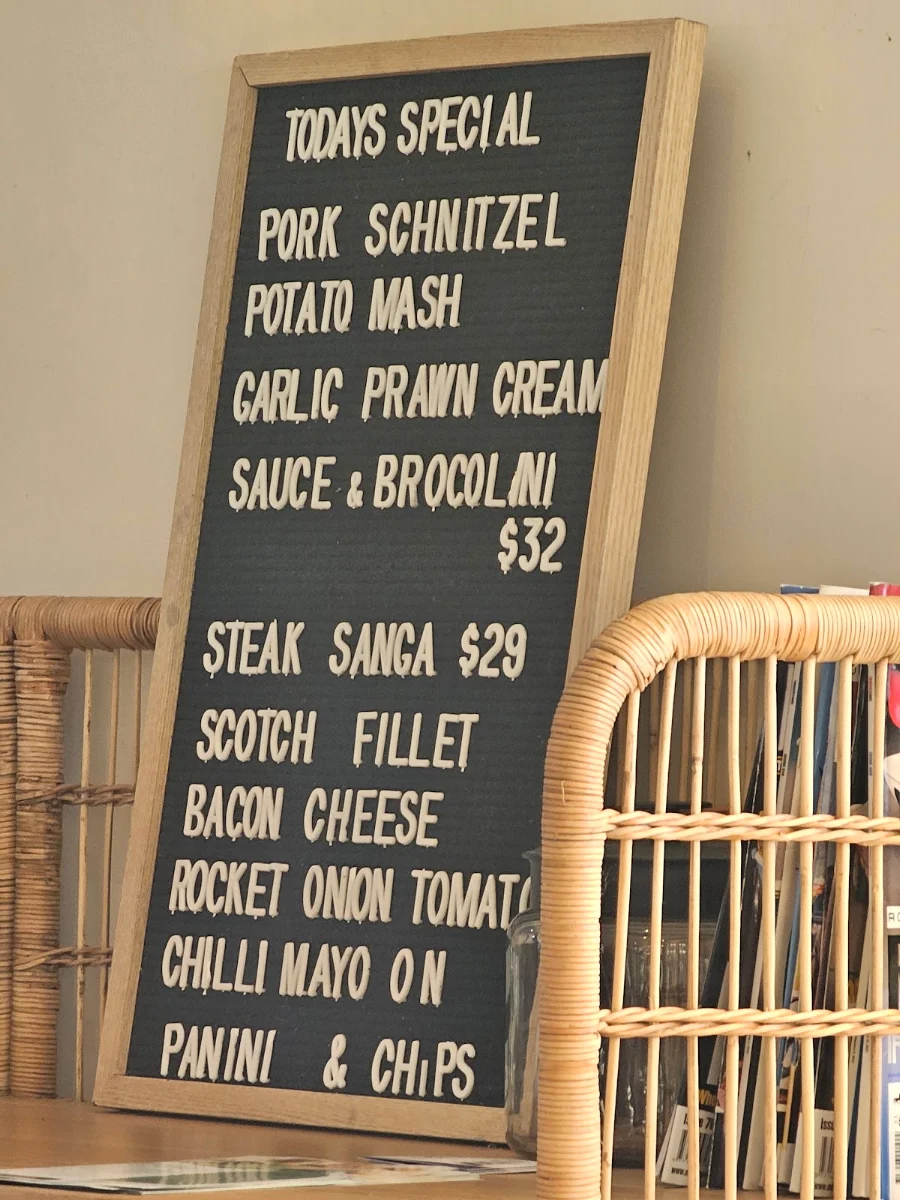 TODAYS SPECIAL
PORK SCHNITZEL
POTATO MASH
GARLIC PRAWN CREAM
SAUCE & BROCOLINI
$32
STEAK SANGA $29
SCOTCH FILLET
BACON CHEESE
ROCKET ONION TOMATO
CHILLI MAYO ON
PANINI & CHIPS